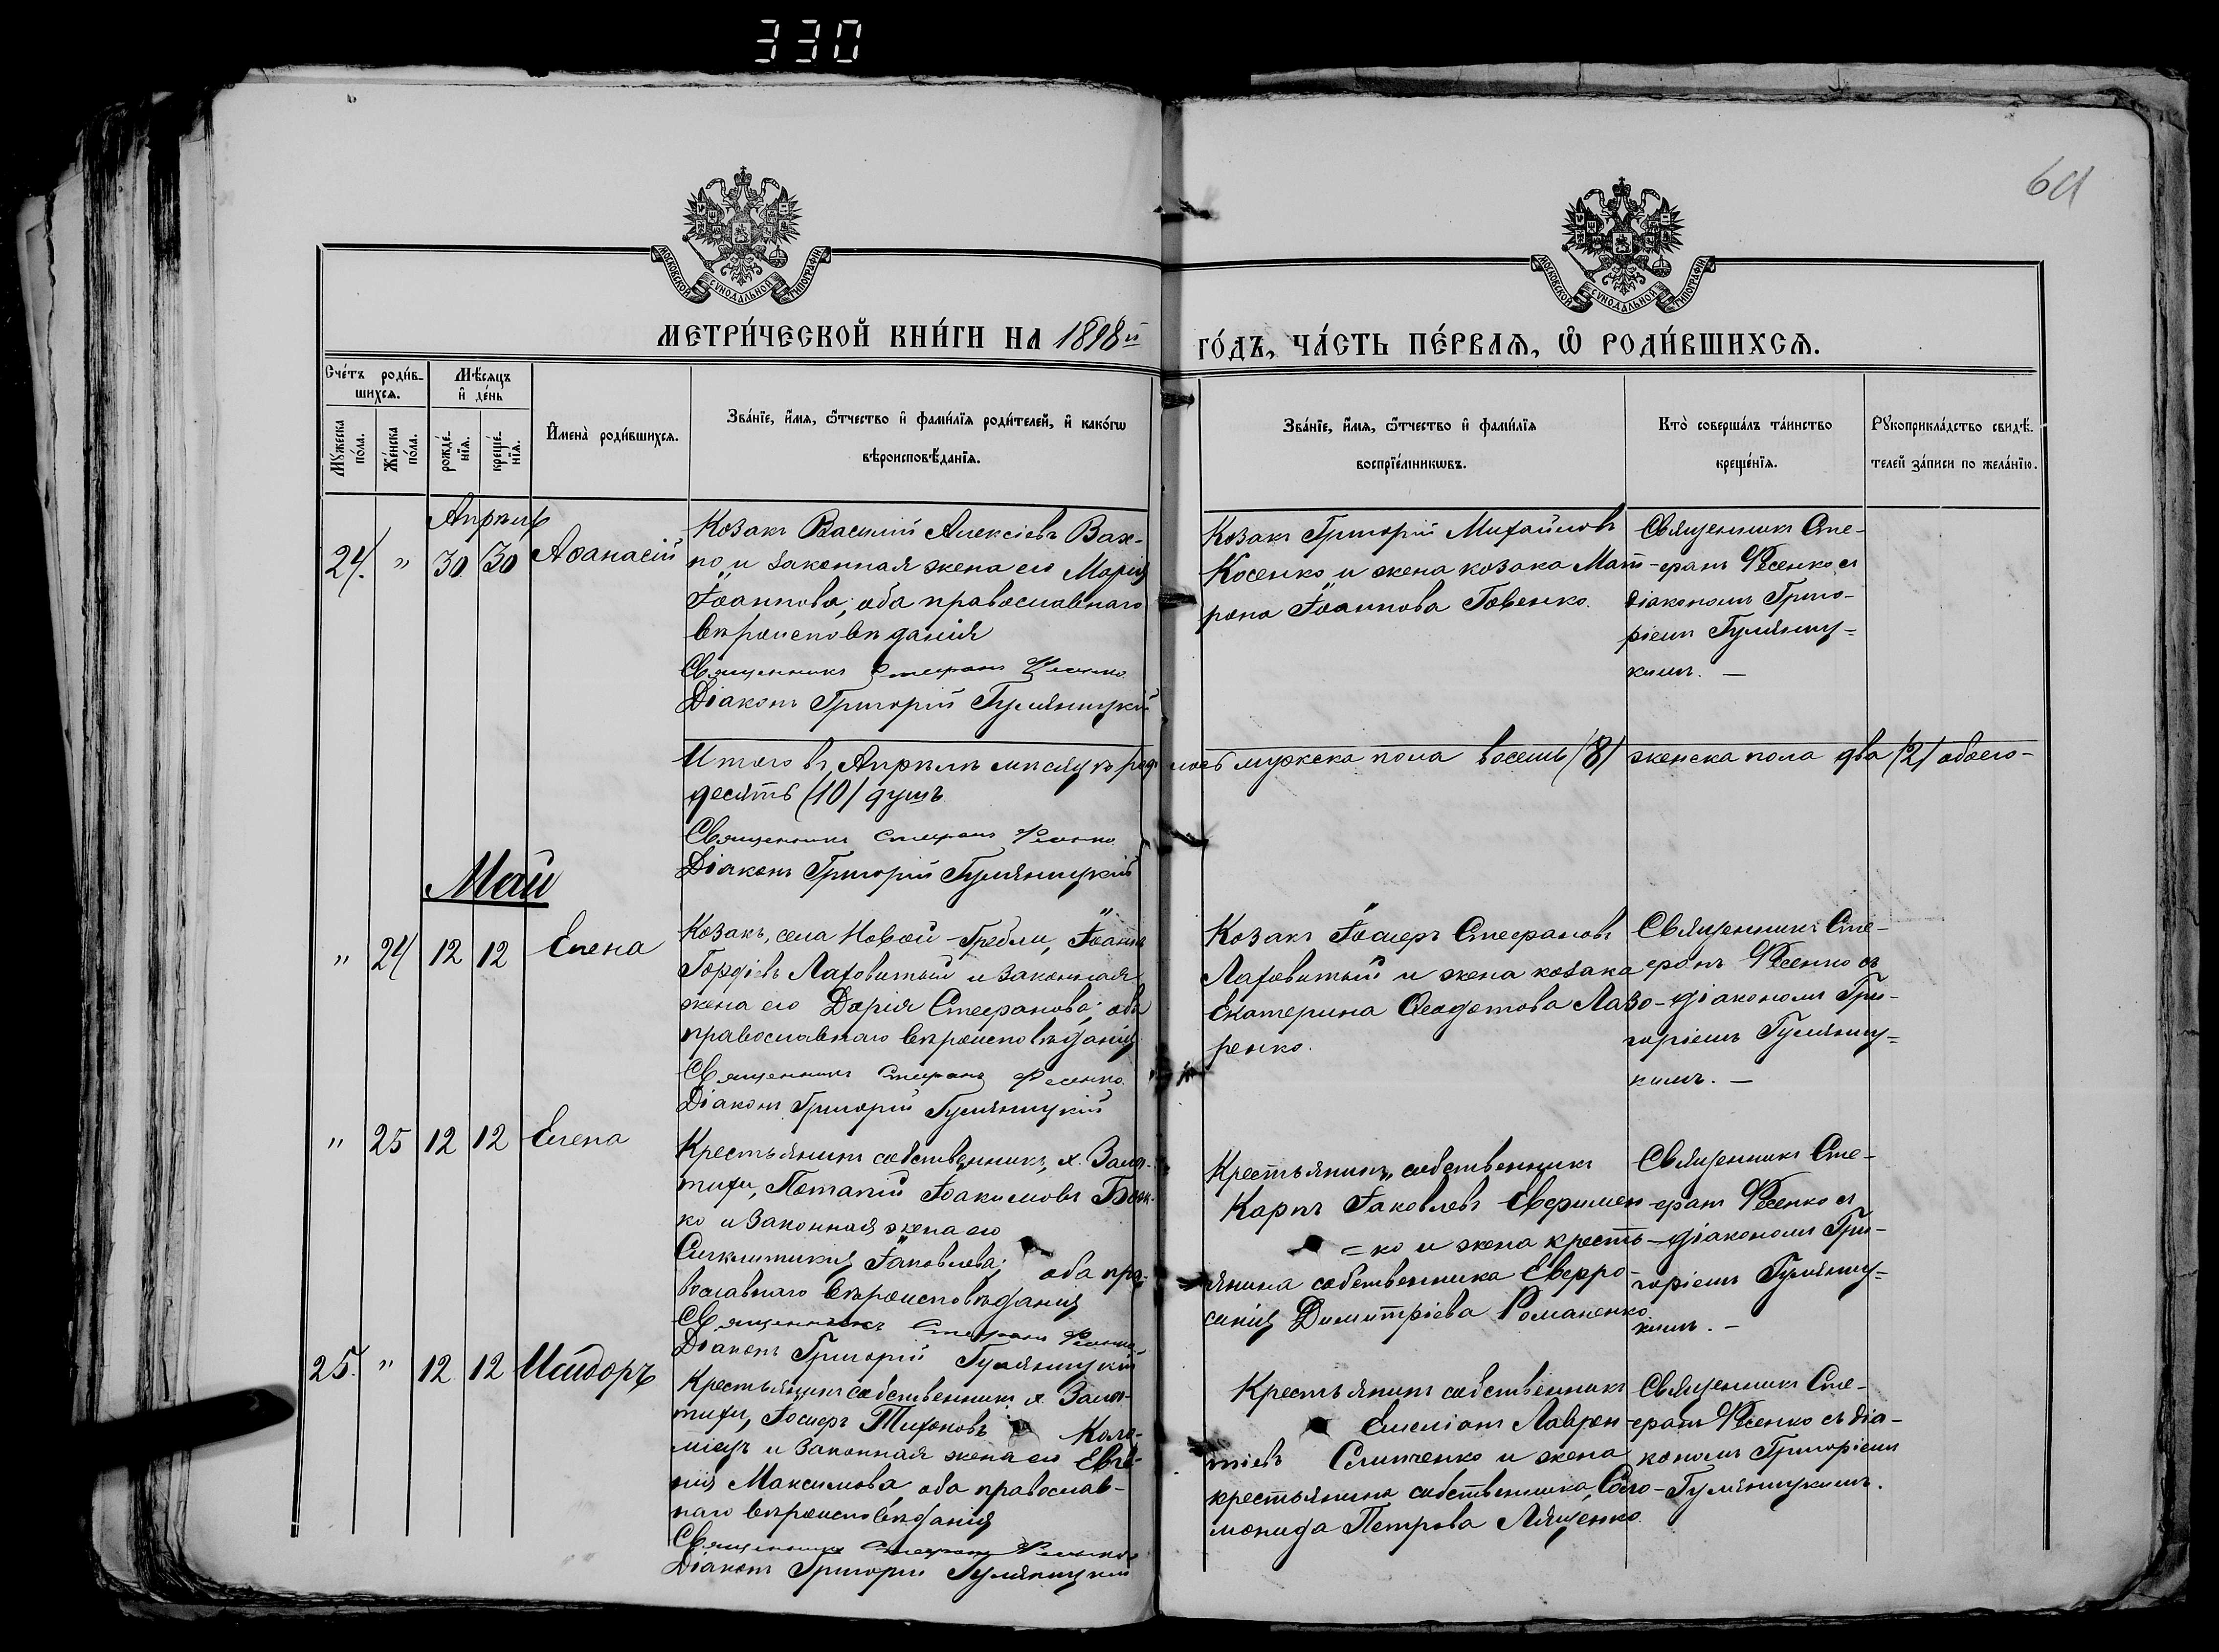 330
61
МОСКОВСКОЙ СѴНОДАЛЬНОЙ ТИПОГРАФІИ.
МОСКОВСКОЙ СѴНОДАЛЬНОЙ ТИПОГРАФІИ.
МЕТРИ́ЧЕСКОЙ КНИ́ГИ НА 1898й
ГО́ДЪ, ЧА́СТЬ ПЕ́РВАЯ, Ѽ РОДИ́ВШИХСЯ.
Сче́тъ роди́в-
шихся.
Мѣ́сяцъ
и҆ де́нь
Мꙋ́жеска
по́ла.
Же́нска
по́ла.
рожде́-
нїя.
креще́-
нїя.
И҆мена̀ роди́вшихся.
Зва́нїе, и҆́мя, ѻ҆́тчество и҆ фами́лїя роди́телей, и҆ како́гѡ
вѣроисповѣ́данїя.
Зва́нїе, и҆́мя, ѻ҆́тчество и҆ фами́лїя
воспрїе́мникѡвъ.
Кто̀ соверша́лъ та́инство
креще́нїя.
Рꙋкоприкла́дство свидѣ́-
телей за́писи по жела́нїю.
Апрѣль
24. " 30 30 Аѳанасій
Козакъ Василій Алексіевъ Вах-
но и законная жена его Марія
Іоаннова; оба православнаго
вѣроисповѣданія
Священникъ Стефанъ Фесенко.
Діаконъ Григорій Гумяницкій
Козакъ Григорій Михайловъ
Косенко и жена козака Мат-
рона Іоаннова Говенко.
Священникъ Сте-
фанъ Фесенко съ
діакономъ Григо-
ріемъ Гумяниц=
кимъ. —
Итого въ Апрѣлѣ мѣсяцѣ родилось мужеска пола восемь /8/ женска пола два /2/ обоего-
десять /10/ душъ
Священникъ Стефанъ Фесенко
Діаконъ Григорій Гумяницкій
Май
" 24 12 12 Елена
Козакъ, села Новой-Гребли, Іоаннъ
Гордіевъ Лаховитый и законная
жена его Дарія Стефанова; оба
православнаго вѣроисповѣданія
Священникъ Стефанъ Фесенко.
Діаконъ Григорій Гумяницкій
Козакъ Іосифъ Стефановъ
Лаховитый и жена козака
Екатерина Ѳеодотова Лазо-
ренко.
Священникъ Сте-
фанъ Фесенко съ
діакономъ Гри-
горіемъ Гумяниц=
кимъ. —
" 25 12 12 Елена
Крестьянинъ собственникъ, х.
Потапій Іоакимовъ
ко и законная жена его
Синклитикія Іаковлева; оба пра-
вославнаго вѣроисповѣданія
Священникъ Стефанъ Фесенко
Діаконъ Григорій Гумяницкій
Крестьянинъ, собственникъ
Карпъ Іаковлевъ Евфимен
=ко и жена кресть-
янина собственника Евфро-
синія Димитріева Романенко
Священникъ Сте-
фанъ Фесенко съ
діакономъ Гри-
горіемъ Гумяниц=
кимъ. —
25. " 12 12 Исидоръ
Крестьянинъ собственникъ х.
Іосифъ Тихоновъ Коло-
міецъ и законная жена его Евге-
нія Максимова, оба православ-
наго вѣроисповѣданія
Священникъ Стефанъ Фесенко
Діаконъ Григорій Гумяницкій
Крестьянинъ собственникъ
Емеліанъ Лаврен-
тіевъ и жена
крестьянина собственника, Соло-
монида Петрова Лященко.
Священникъ Сте-
фанъ Фесенко съ діа-
кономъ Григоріемъ
Гумяницкимъ.